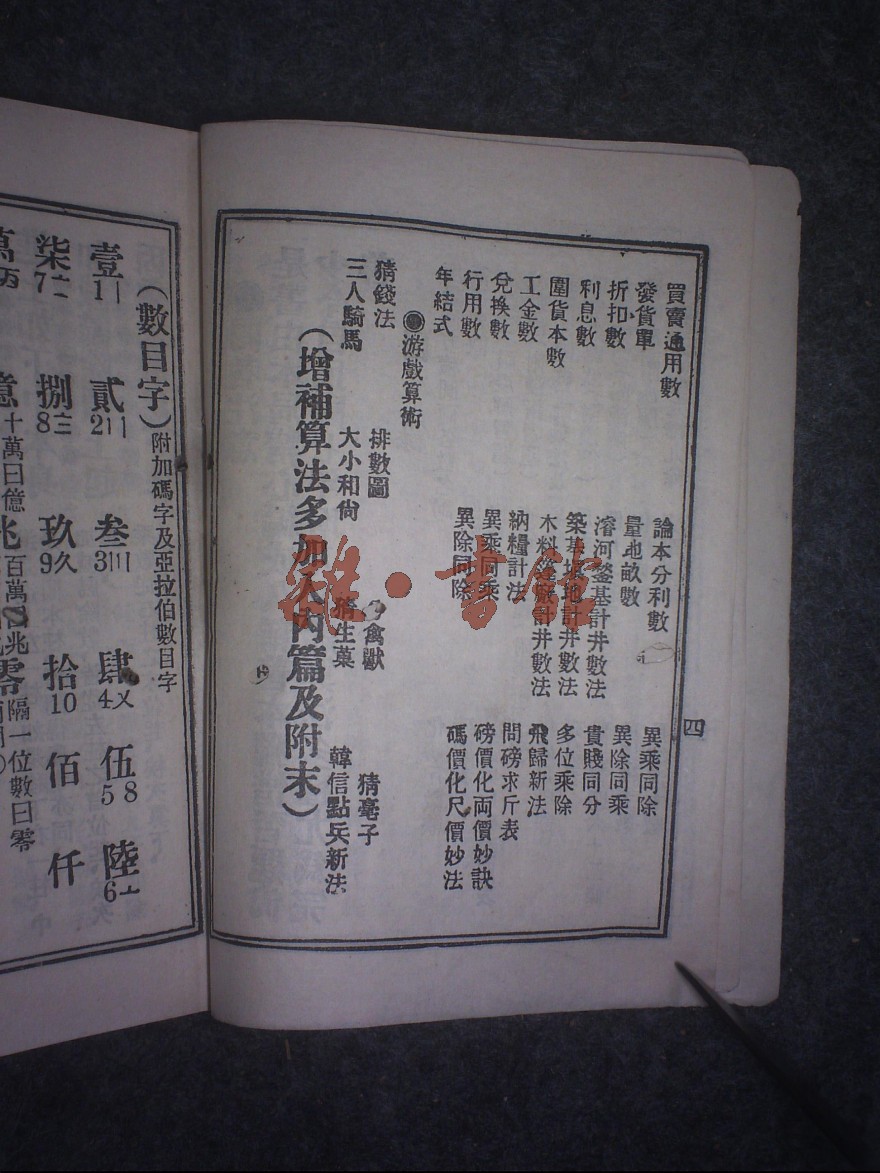 四
買賣通用數
發貨單
折扣數
利息數
圍貨本數
工金數
兌換數
行用數
年結式
論本分利數
量地畝數
溶河鏨基計井數法
築基坡地計井數法
木料籮數計井數法
納糧計法
異乘同乘
異除同除
異乘同除
異除同乘
貴賤同分
多位乘除
飛歸新法
問磅求斤表
磅價化両價妙訣
碼價化尺價妙法
●游戲算術
猜錢法
排數圖
禽獸
猜毫子
三人騎馬
大小和尙
猜生菓
韓信點兵新法
(增補算法多加入內篇及附末)
(數目字)附加碼字及亞拉伯數目字
壹 貳 叁 肆 伍 陸
1〡 2〢 3〣 4〤 5 8 6〦
柒 捌 玖 拾 佰 仟
7〧 8〨 9〩 10
萬 億十萬曰億 兆百萬曰兆 零隔一位數曰零
雜·書館